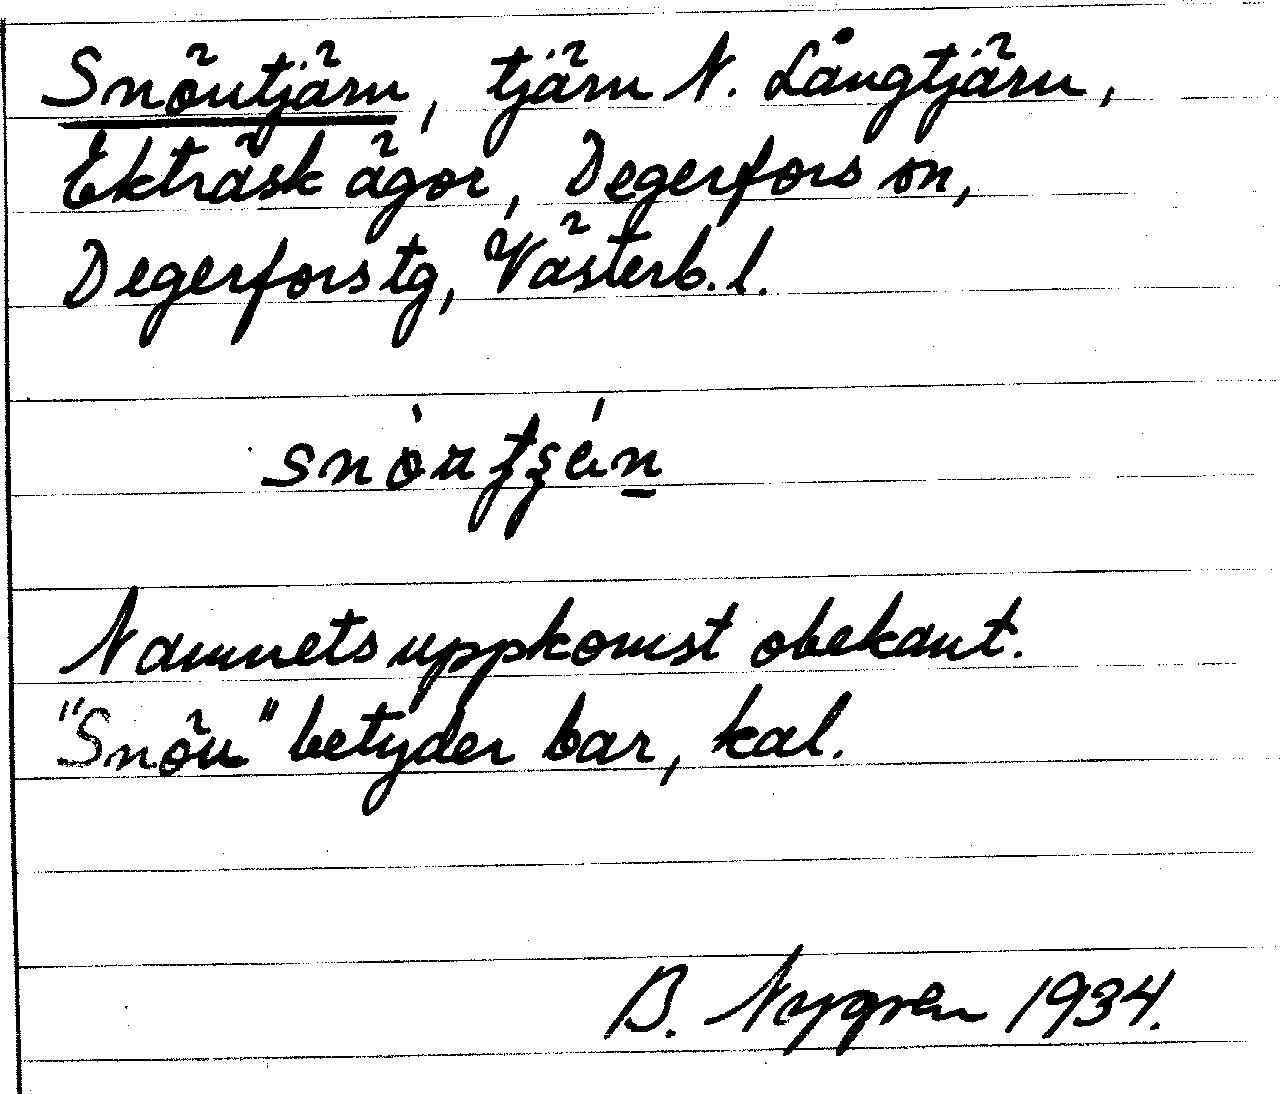 Snöutjärn, tjärn N. Långtjärn,
Ekträsk ägor, Degerfors sn,
Degerfors tg, Västerb. l.
Namnets uppkomst obekant.
"Snöu" betyder bar, kal.
B. Nygren 1934.